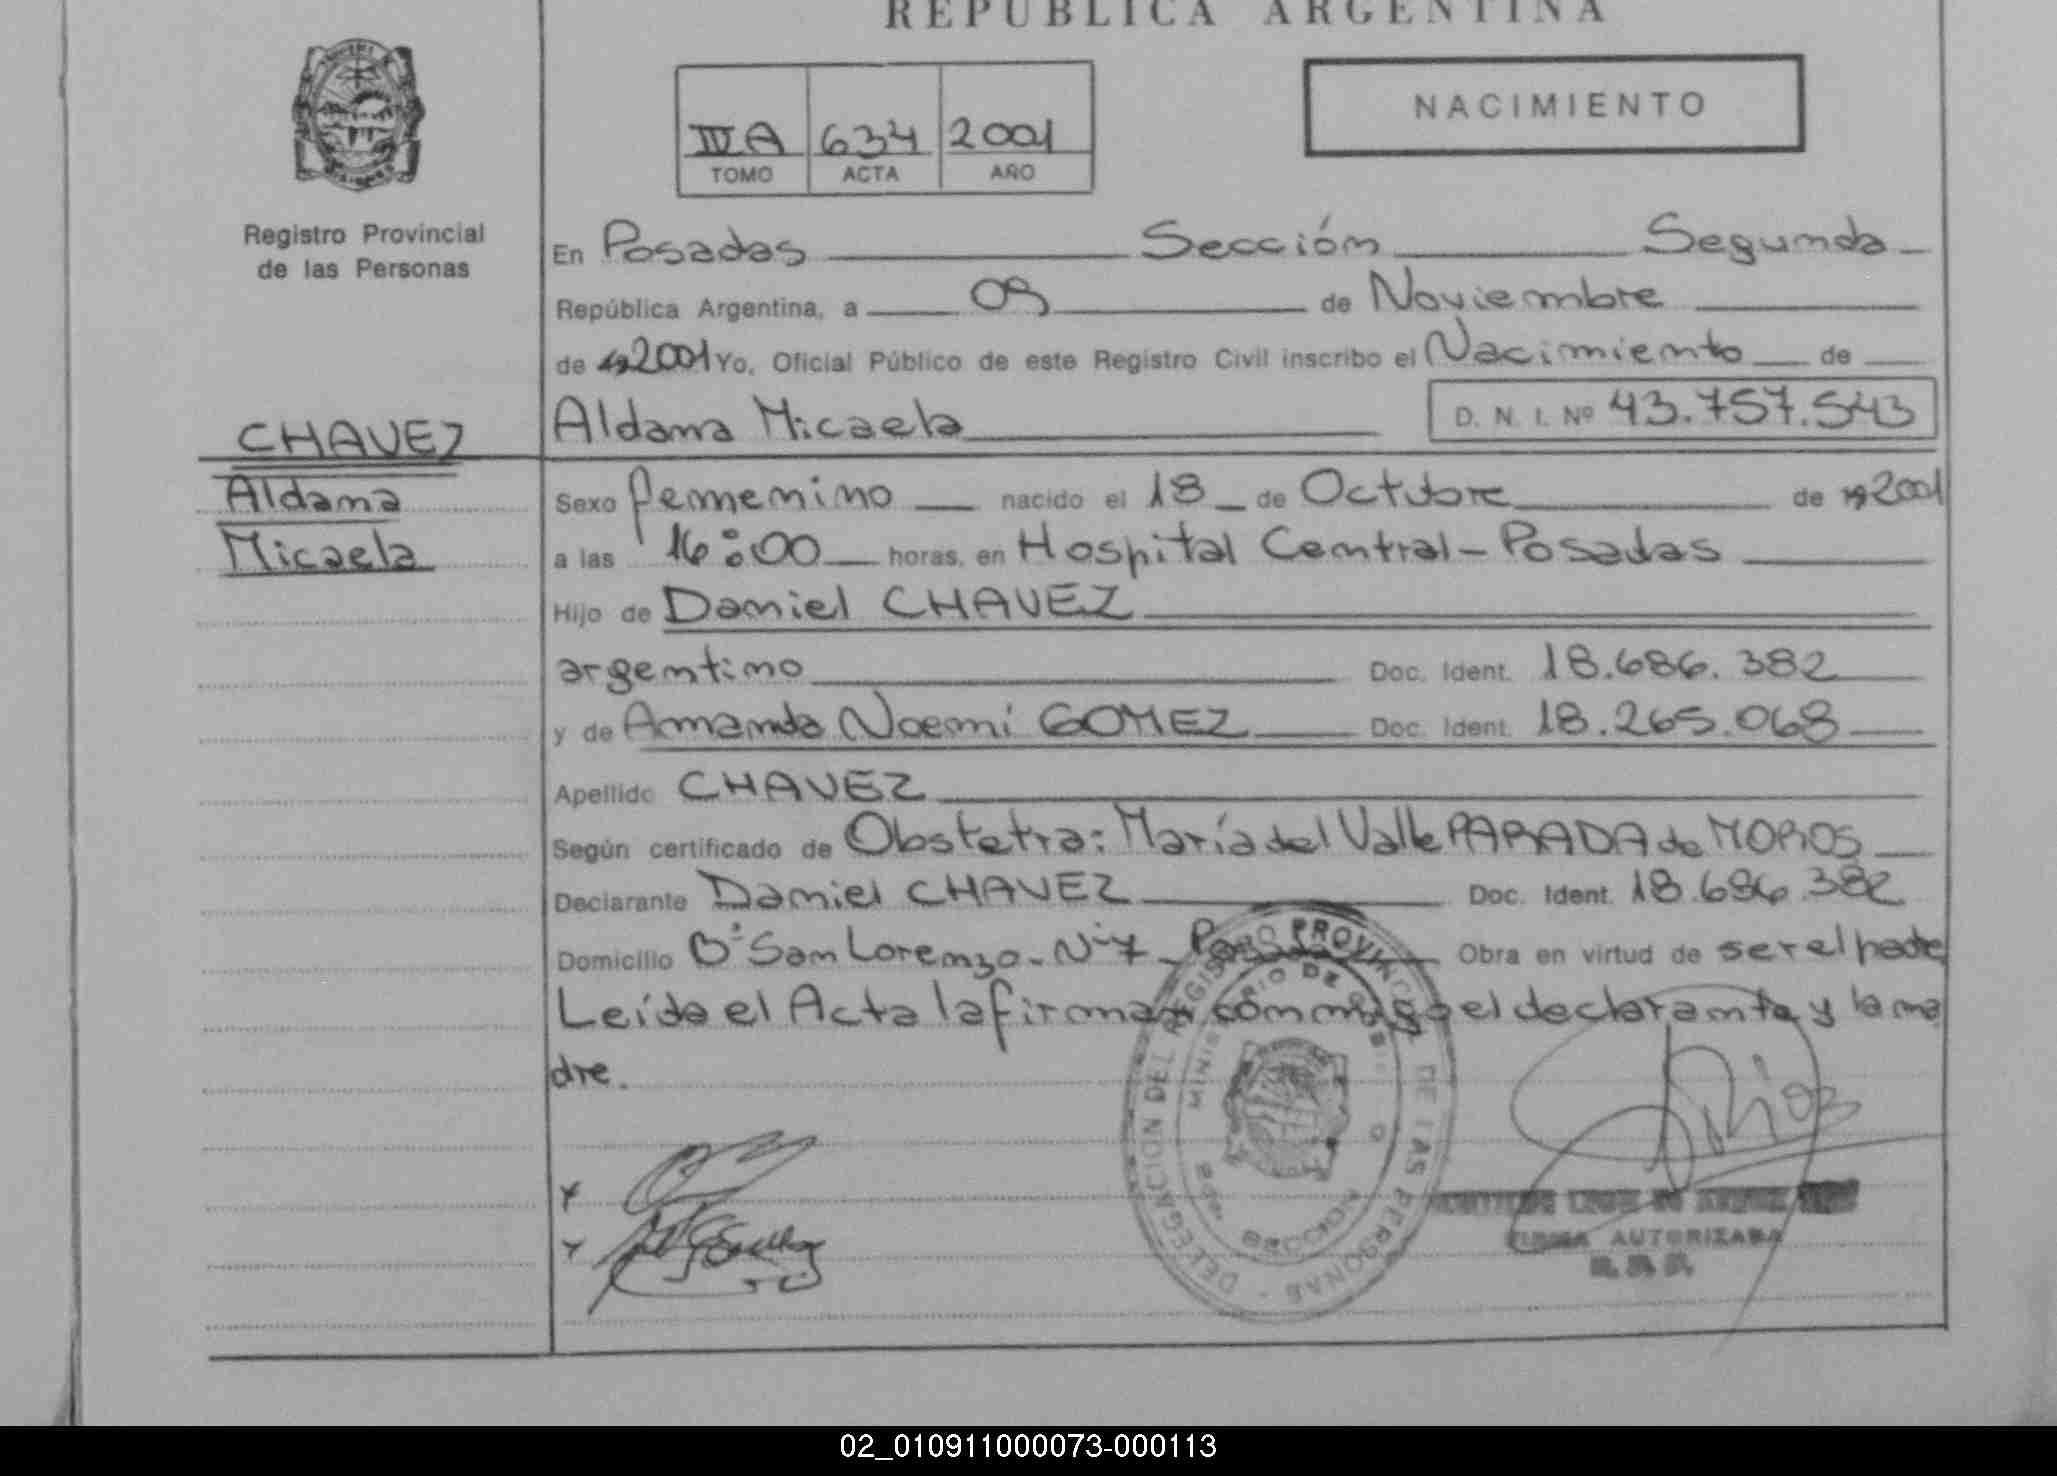 REPUBLICA ARGENTINA
NACIMIENTO
IVA 634 2001
TOMO ACTA AÑO
Registro Provincial
de las Personas
En Posadas Sección Segunda
República Argentina, a 09 de Noviembre
de 19 2001 Yo, Oficial Público de este Registro Civil inscribo el Nacimiento de
CHAVEZ
Aldana Micaela D. N. I. Nº 43.757.543
Aldana
Micaela
Sexo femenino nacido el 18 de Octubre de 19 2001
a las 16:00 horas, en Hospital Central - Posadas
Hijo de Daniel CHAVEZ
argentino Doc. Ident. 18.686.382
y de Amanda Noemí GOMEZ Doc. Ident. 18.265.068
Apellido CHAVEZ
Según certificado de Obstetra: María del Valle PARADA de MOROS
Declarante Daniel CHAVEZ Doc. Ident. 18.686.382
Domicilio Bº San Lorenzo - Nº 7 - Posadas Obra en virtud de ser el padre
Leída el Acta la firman conmigo el declarante y la ma
dre.
DELEGACION DEL REGISTRO PROVINCIAL DE LAS PERSONAS
MINISTERIO DE GOBIERNO
SECCION
FIRMA AUTORIZADA
R. P. P.
02_010911000073-000113